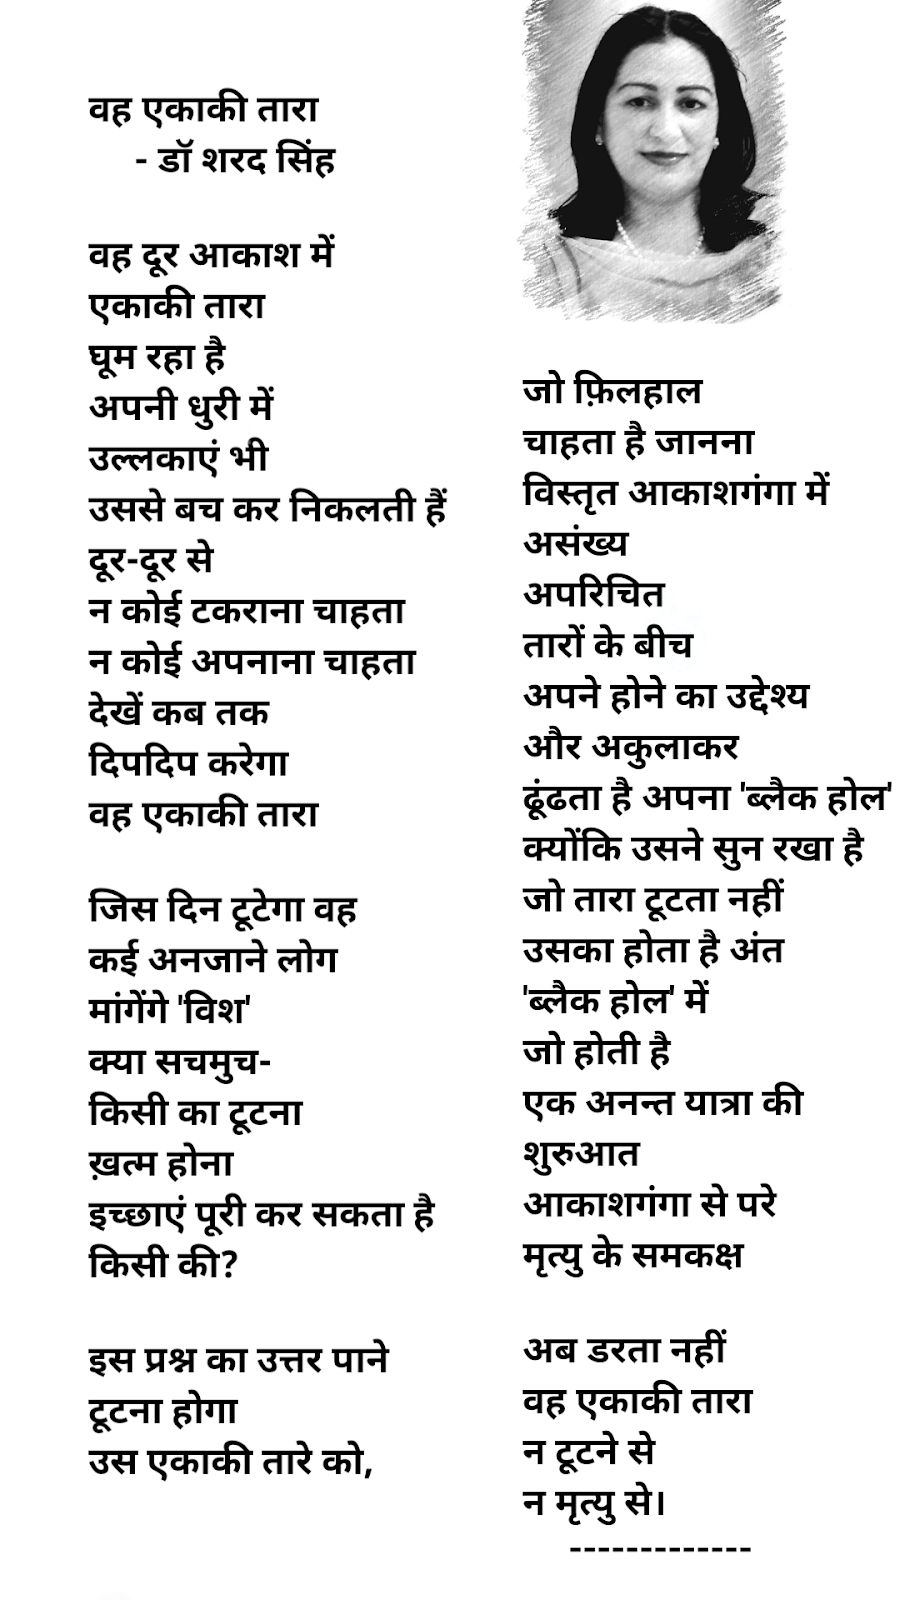 वह एकाकी तारा
- डॉ शरद सिंह
वह दूर आकाश में
एकाकी तारा
घूम रहा है
अपनी धुरी में
उल्लकाएं भी
उससे बच कर निकलती हैं
दूर-दूर से
न कोई टकराना चाहता
न कोई अपनाना चाहता
देखें कब तक
दिपदिप करेगा
वह एकाकी तारा
जिस दिन टूटेगा वह
कई अनजाने लोग
मांगेंगे 'विश'
क्या सचमुच-
किसी का टूटना
ख़त्म होना
इच्छाएं पूरी कर सकता है
किसी की?
इस प्रश्न का उत्तर पाने
टूटना होगा
उस एकाकी तारे को,
जो फ़िलहाल
चाहता है जानना
विस्तृत आकाशगंगा में
असंख्य
अपरिचित
तारों के बीच
अपने होने का उद्देश्य
और अकुलाकर
ढूंढता है अपना 'ब्लैक होल'
क्योंकि उसने सुन रखा है
जो तारा टूटता नहीं
उसका होता है अंत
'ब्लैक होल' में
जो होती है
एक अनन्त यात्रा की
शुरुआत
आकाशगंगा से परे
मृत्यु के समकक्ष
अब डरता नहीं
वह एकाकी तारा
न टूटने से
न मृत्यु से।
-------------